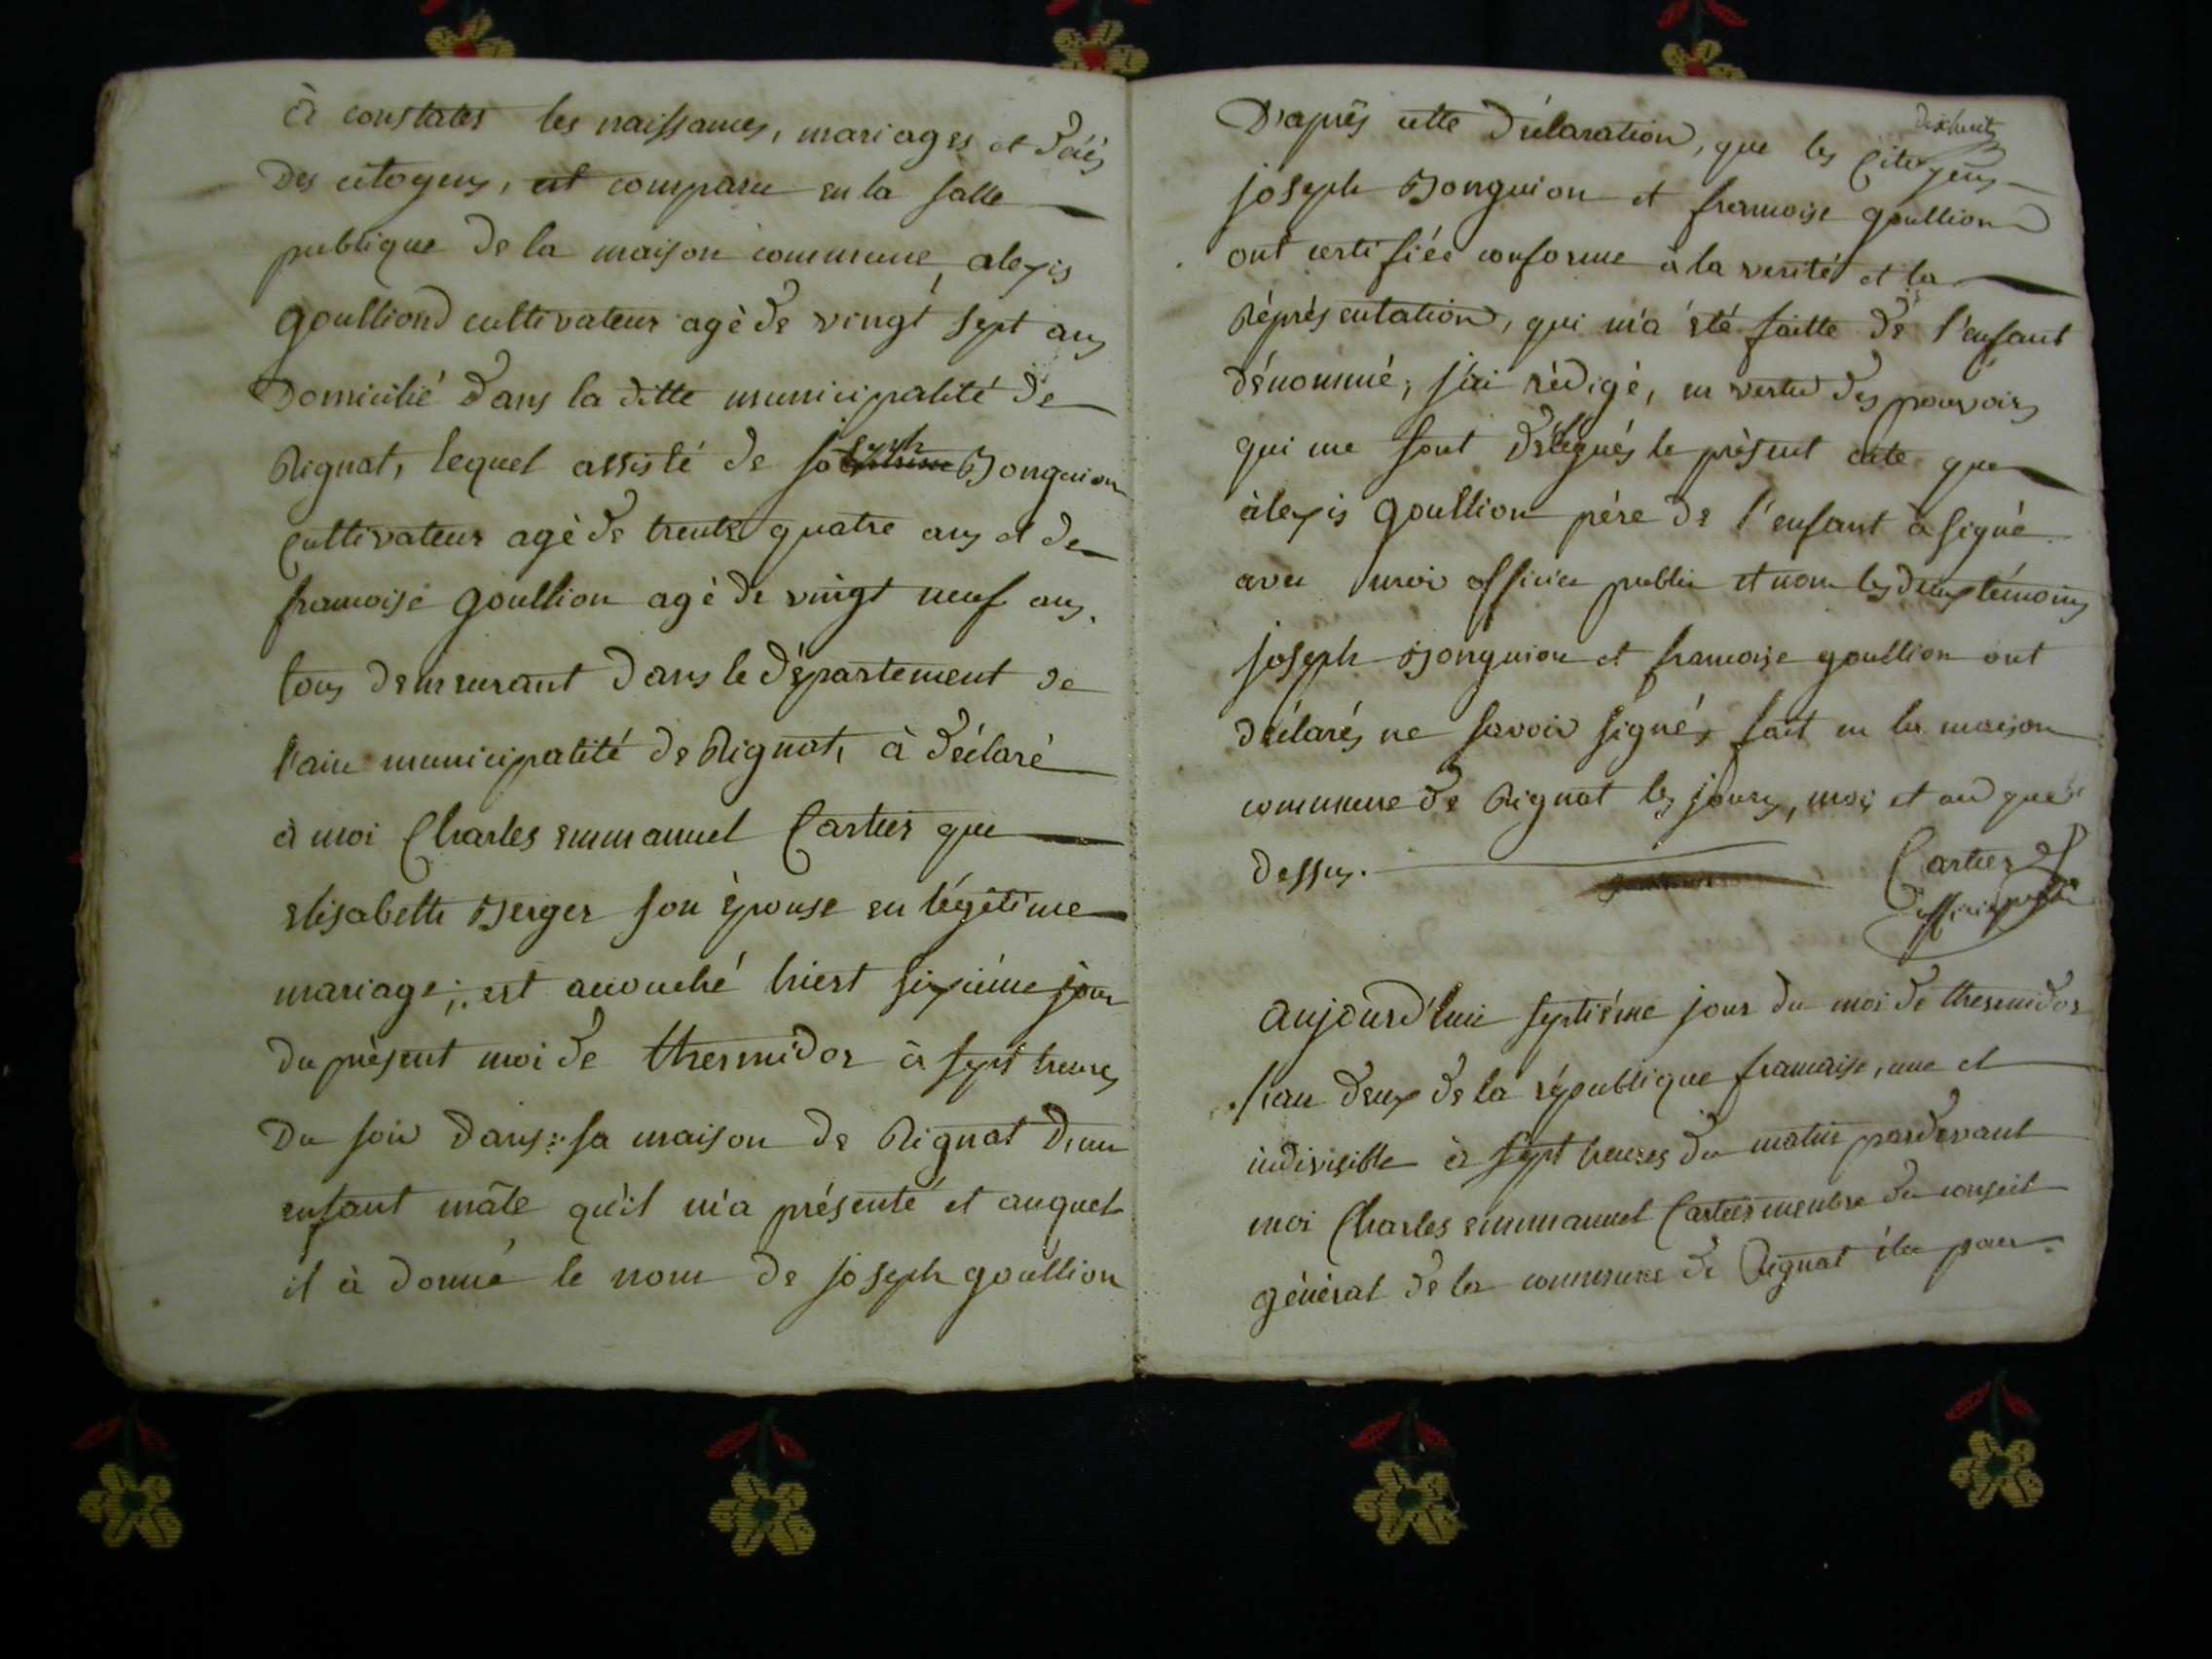 à constater les naissances, mariages et décès
Des citoyens, est comparu en la salle
publique de la maison commune, alexis
goullion cultivateur agè de vingt sept ans
Domicilié dans la ditte municipalité de
Rignat, lequel assisté de joseph Bonguion
Cultivateur agè de trente quatre ans et de
francoise goullion agè de vingt neuf ans.
tous demeurant dans le département de
l'ain municipalité de Rignat, à déclaré
à moi Charles emmanuel Cartier que
elisabette Berger son épouse en légitime
mariage; est accouché hiert sixième jour
du présent moi de thermidor à sept heures
Du soir dans sa maison de Rignat d'un
enfant mâle qu'il m'a présenté et auquel
il à donné le nom de joseph goullion
Dixhuit
D'après cette déclaration, que les Citoyens
joseph Bonguion et francoise goullion
ont certifiée conforme à la verité et la
Réprésentation, qui m'a été faitte de l'enfant
dénommé; j'ai rédigé, en vertu des pouvoirs
qui me sont délegués le présent acte que
àlexis goullion père de l'enfant à signé
avec moi officier public et non les deux témoins
joseph Bonguion et francoise goullion ont
déclarés ne savoir signé, fait en la maison
commune de Rignat les jours, mois et an que
dessus.
Cartier
officier public
aujourd'hui septième jour du moi de thermidor
l'an deux de la république francaise, une et
indivisible à sept heures du matin pardevant
moi Charles emmanuel Cartier membre du conseil
général de la commune de Rignat élu pour